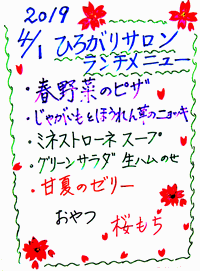 2019
4/1 ひろがりサロン
ランチメニュー
・春野菜のピザ
・じゃがいもとほうれん草のニョッキ
・ミネストローネ スープ
・グリーンサラダ 生ハムのせ
・甘夏のゼリー
おやつ 桜もち